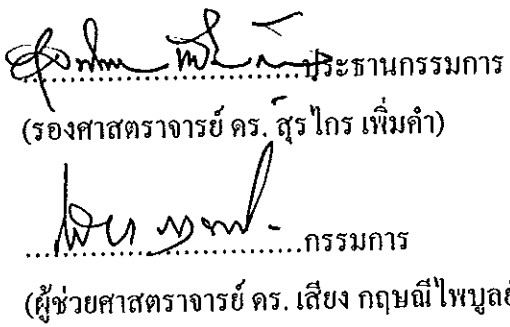 ประธานกรรมการ
(รองศาสตราจารย์ ดร. สุรไกร เพิ่มคำ)
กรรมการ
(ผู้ช่วยศาสตราจารย์ ดร. เสียง กฤษณีไพบูลย์